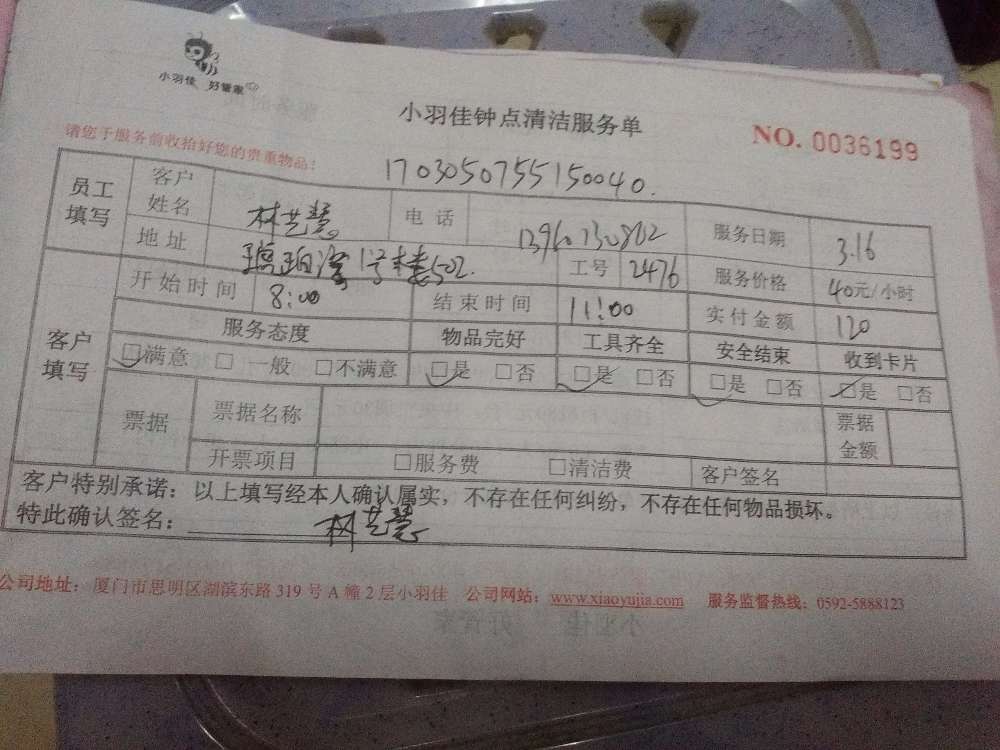 小羽佳 好管家
小羽佳钟点清洁服务单
NO. 0036199
请您于服务前收拾好您的贵重物品：
1703050755150040.
员工填写 客户姓名 林艺慧 电话 服务日期 3.16
地址 1号楼502. 工号 2476 服务价格 40元/小时
客户填写 开始时间 8:00 结束时间 11:00 实付金额 120
服务态度 物品完好 工具齐全 安全结束 收到卡片
□满意 □一般 □不满意 □是 □否 □是 □否 □是 □否 □是 □否
票据 票据名称 票据金额
开票项目 □服务费 □清洁费 客户签名
客户特别承诺：以上填写经本人确认属实，不存在任何纠纷，不存在任何物品损坏。
特此确认签名： 林艺慧
公司地址：厦门市思明区湖滨东路 319 号 A 幢 2 层小羽佳 公司网站：www.xiaoyujia.com 服务监督热线：0592-5888123